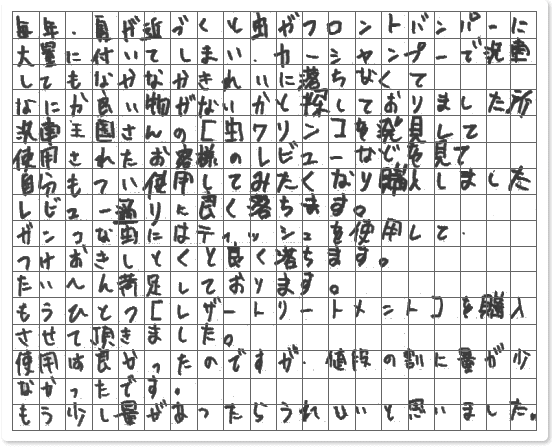 毎年、夏が近づくと虫がフロントバンパーに
大量に付いてしまい、カーシャンプーで洗車
してもなかなかきれいに落ちなくて
なにか良い物がないかと探しておりました所
洗車王国さんの[虫クリンコを発見して
使用されたお客様のレビューなどを見て
自分もつい使用してみたくなり購入しました
レビュー通りに良く落ちます。
ガンコな虫にはティッシュを使用して、
つけおきしとくと良く落ちます。
たいへん満足しております。
もうひとつ[レザートリートメントコを購入
させて頂きました。
使用は良かったのですが、値段の割に量が少
なかったです。
もう少し量があったらうれしいと思いました。